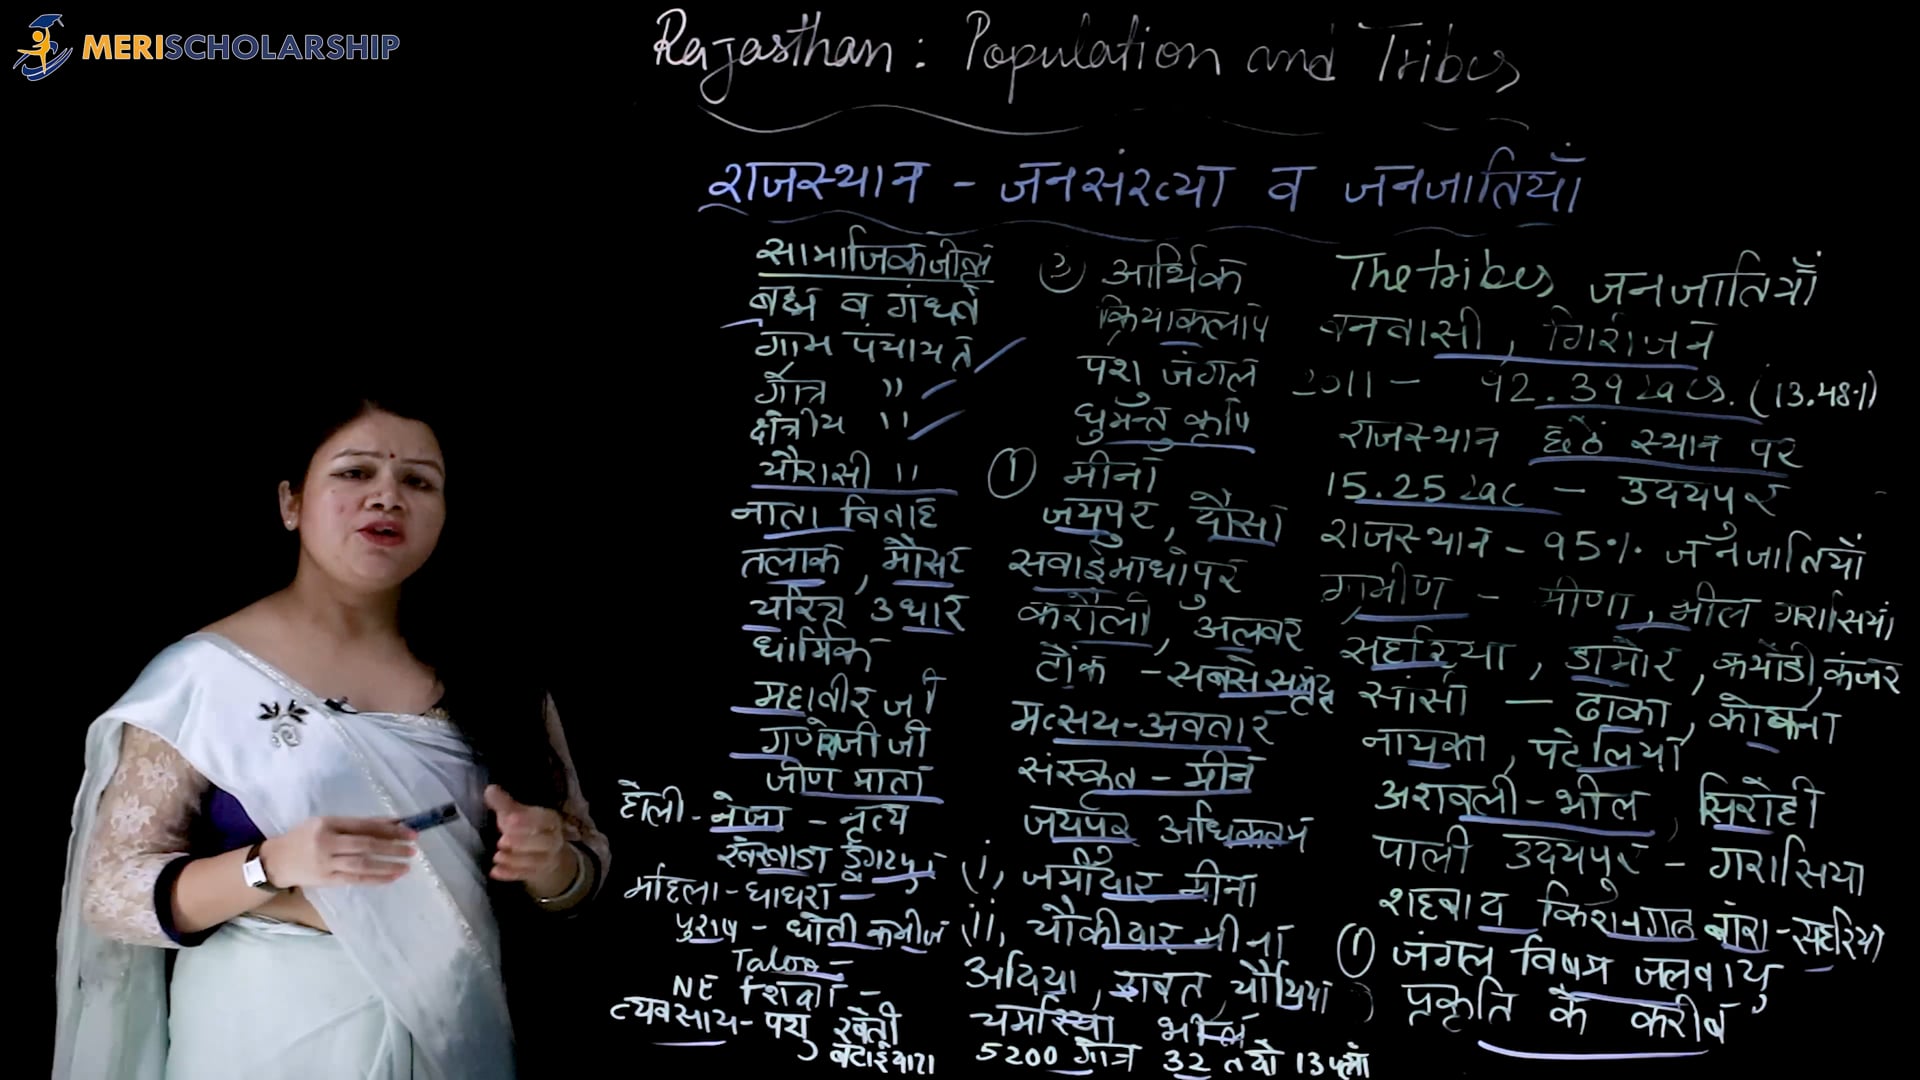 MERISCHOLARSHIP
Rajasthan : Population and Tribes
राजस्थान - जनसंख्या व जनजातियाँ
सामाजिक जीवन
ब्रह्म व गंधर्व
ग्राम पंचायत
गौत्र "
क्षेत्रीय "
चौरासी "
नाता विवाह
तलाक, मौसर
चरित्र उधार
धार्मिक
महावीर जी
गणेशजी जी
जीण माता
होली - नेजा - नृत्य
खेरवाडा डूंगरपुर
महिला - घाघरा -
पुरुष - धोती कमीज
Taloo -
NE शिक्षा -
व्यवसाय - पशु खेती
बटाईदारी
② आर्थिक
क्रियाकलाप
पशु जंगल
घुमन्तु कृषि
① मीना
जयपुर, दौसा
सवाईमाधोपुर
करौली, अलवर
टोंक - सबसे समृद्ध
मत्सय - अवतार
संस्कृत - मीन
जयपुर अधिकतम
(i) जमींदार मीना
(ii) चौकीदार मीना
अदिया, रावत,
भील
5200 गौत्र 32 तडो 13 पालो
The tribes जनजातियाँ
वनवासी, गिरीजन
2011 - 92.39 Lacs. (13.48%)
राजस्थान छठे स्थान पर
15.25 Lac - उदयपुर
राजस्थान - 95% जनजातियाँ
ग्रामीण - मीणा, भील गरासिया
सहरिया, डामोर, कथोडी, कंजर
सांसी - ढाका, कोकना
नायका, पटेलिया
अरावली - भील, सिरोही
पाली उदयपुर - गरासिया
शहबाद किशनगढ बांरा - सहरिया
① जंगल विषम जलवायु
प्रकृति के करीब